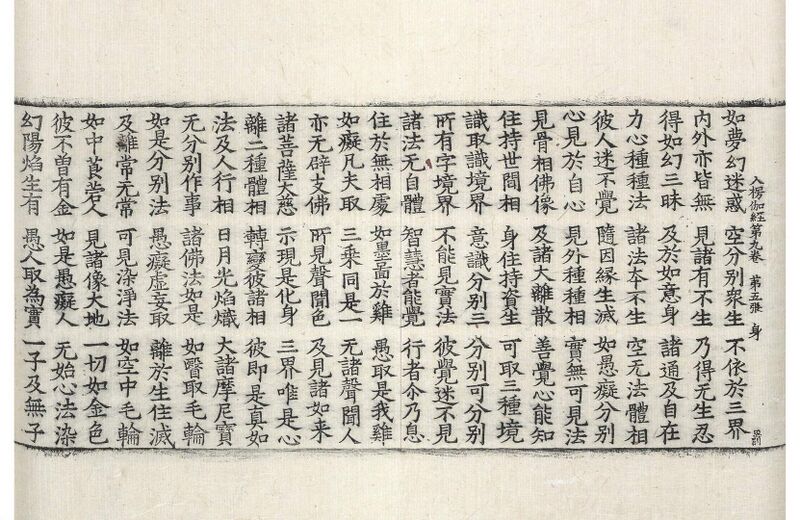 入楞伽經第九卷 第五張 身
如夢幻迷惑 空分別衆生 不依於三界
內外亦皆無 見諸有不生 乃得无生忍
得如幻三昧 及於如意身 諸通及自在
力心種種法 諸法夲不生 空无法體相
彼人迷不覺 隨因緣生滅 如愚癡分別
心見於自心 見外種種相 實無可見法
見骨相佛像 及諸大離散 善覺心能知
住持世間相 身住持資生 可取三種境
識取識境界 意識分別三 分別可分別
所有字境界 不能見實法 彼覺迷不見
諸法无自體 智慧者能覺 行者尒乃息
住於無相處 如墨啚於雞 愚取是我雞
如癡凡夫取 三乘同是一 無諸聲聞人
亦无辟支佛 所見聲聞色 及見諸如来
諸菩薩大慈 示現是化身 三界唯是心
離二種體相 轉變彼諸相 彼即是真如
法及人行相 日月光焰熾 大諸摩尼寶
无分別作事 諸佛法如是 如瞖取毛輪
如是分別法 愚癡虛妄取 離於生住滅
及離常无常 可見染淨法 如空中毛輪
如中莨菪人 見諸像大地 一切如金色
彼不曾有金 如是愚癡人 无始心法染
幻陽焰生有 愚人取為實 一子及無子